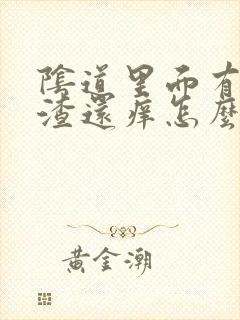 陰道里而有
渣還痒怎麼
黄金潮